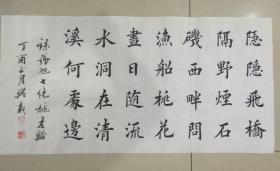 隱隱飛橋
隔野煙石
磯西畔問
漁船桃花
盡日随流
水洞在清
溪何處邊
張旭七絶桃花谿
丁酉